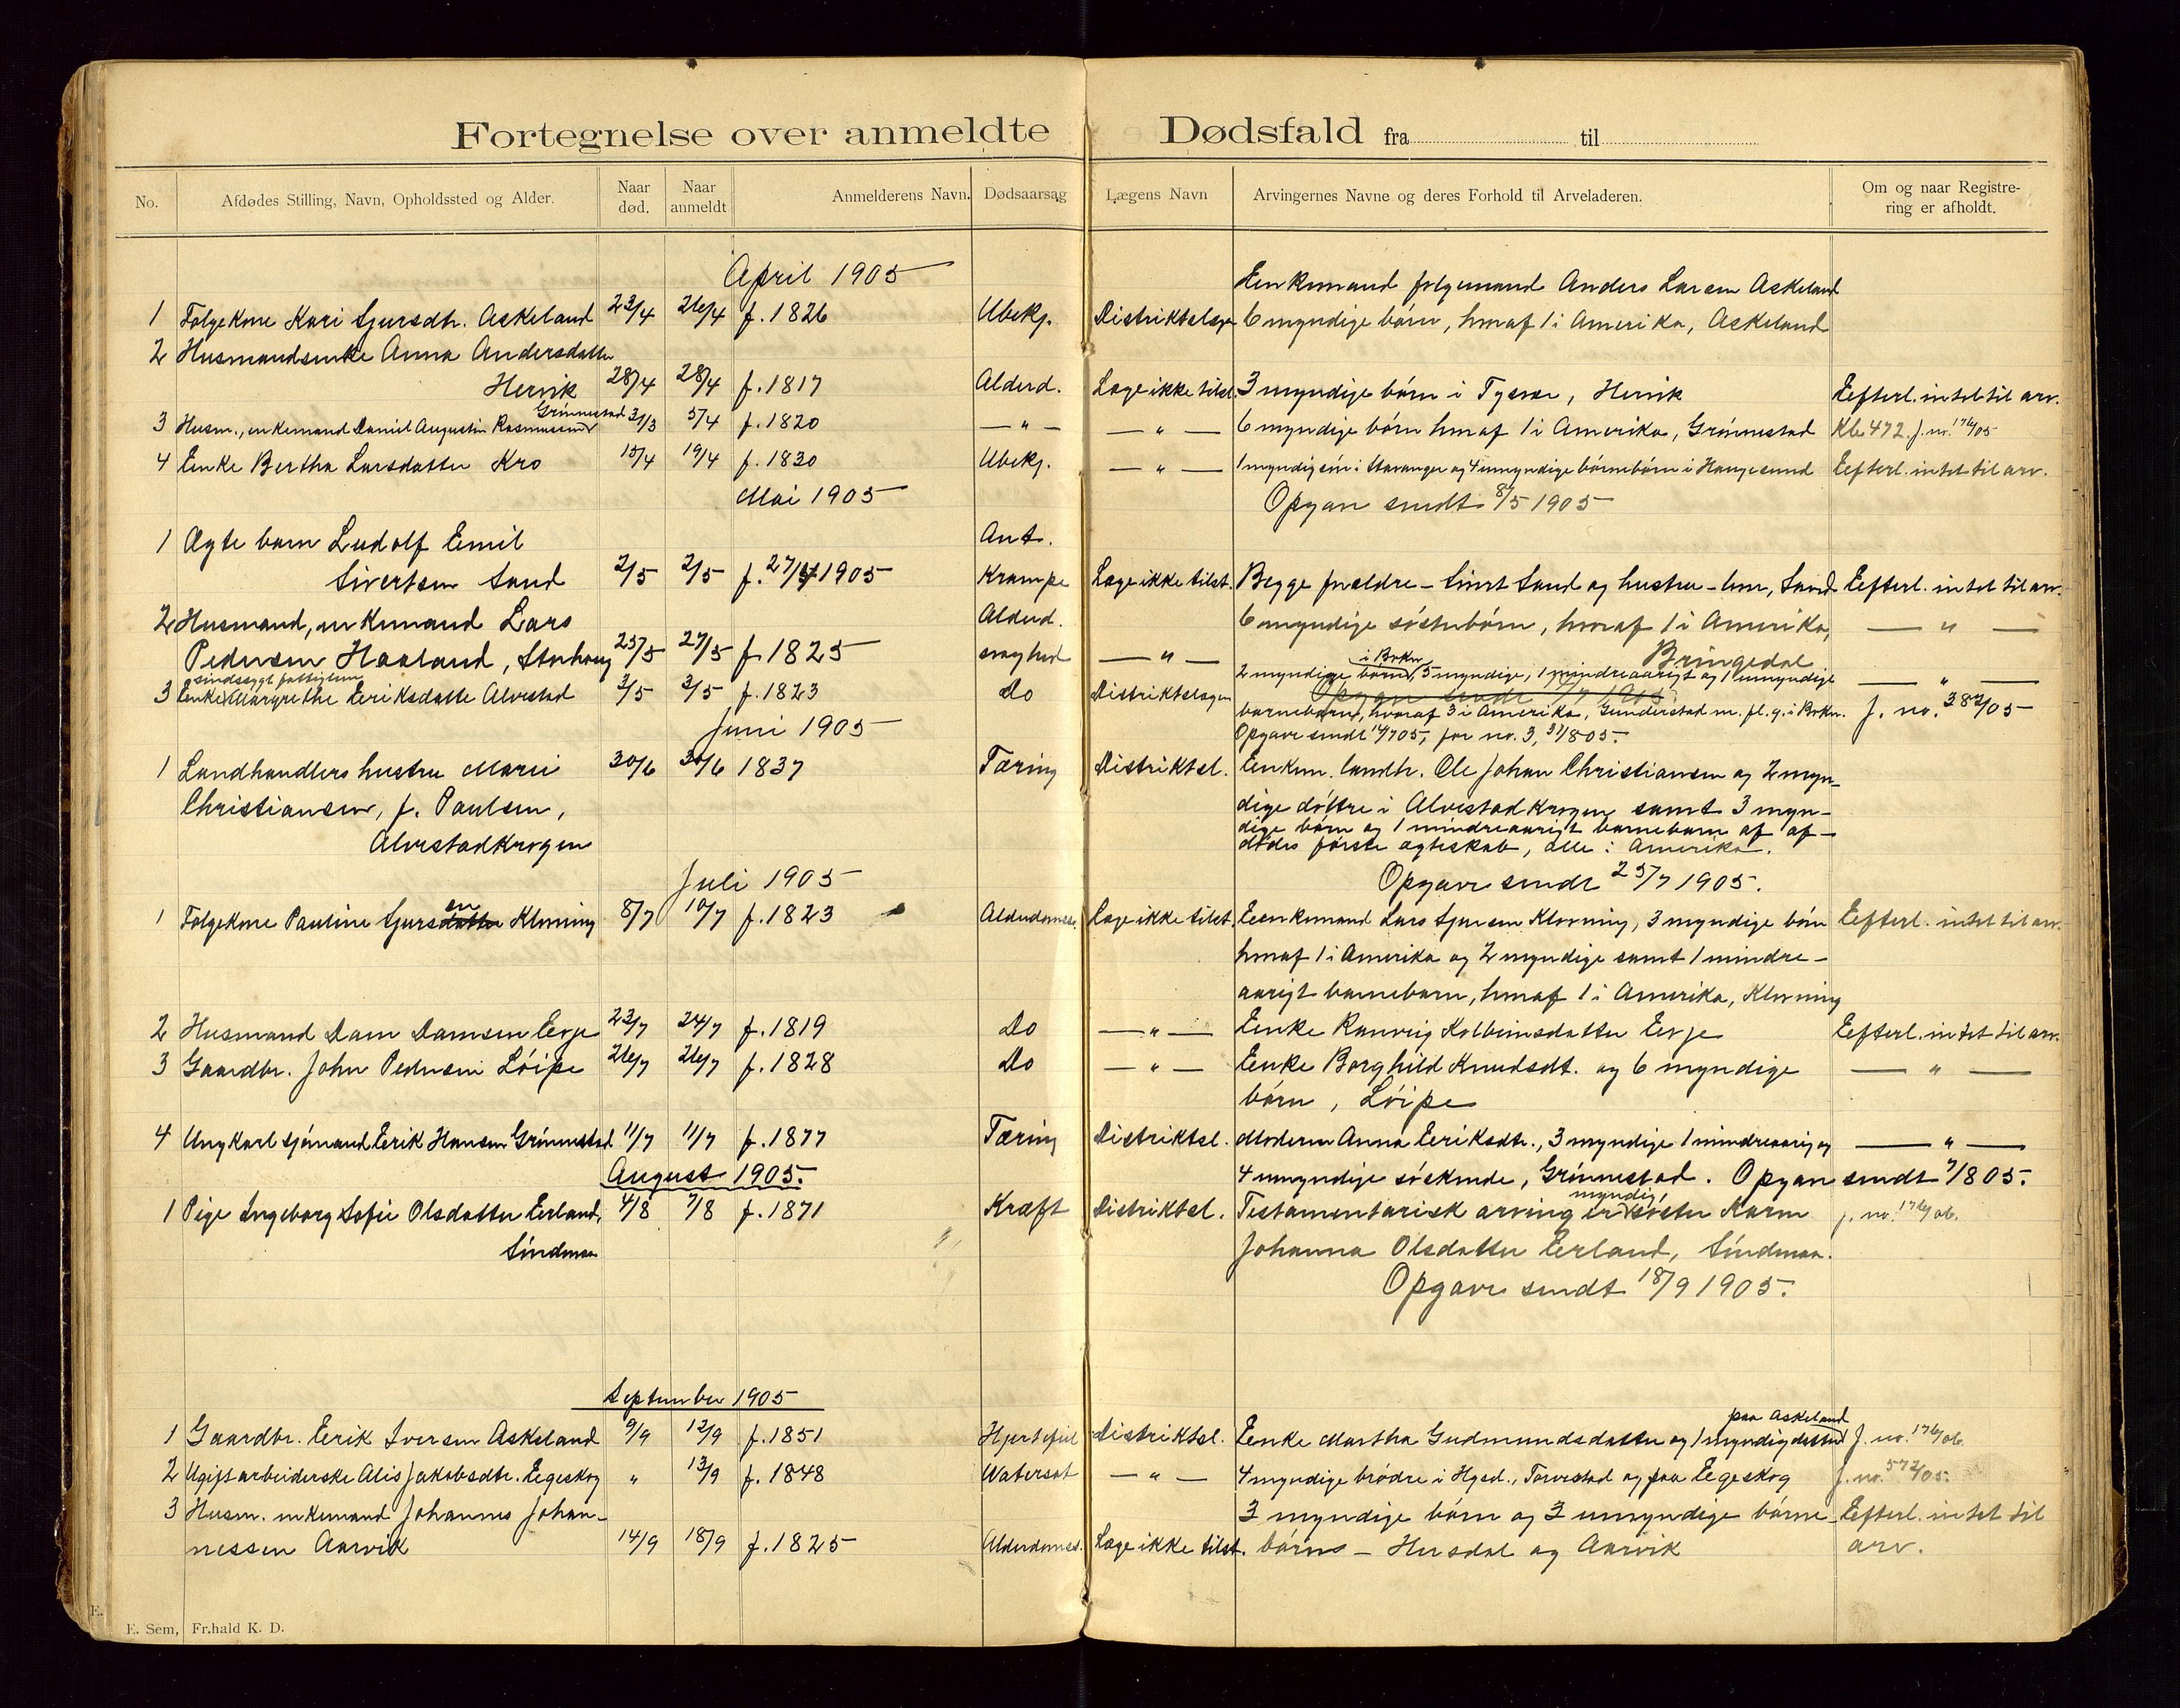 Fortegnelse over anmeldte Dødsfald fra til
No. Afdødes Stilling, Navn, Opholdssted og Alder. Naar død. Naar anmeldt Anmelderens Navn. Dødsaarsag Lægens Navn Arvingernes Navne og deres Forhold til Arveladeren. Om og naar Registrering er afholdt.
April 1905
Enkemand folgemand Anders Larsen Askeland
1 Folgekone Kari Sjursdtr. Askeland 23/4 26/4 f. 1826 Ubekj. Distriktslæge 6 myndige børn, hvoraf 1 i Amerika, Askeland
2 Husmandsenke Anna Andersdatter
Hervik 28/4 28/4 f. 1817 Alderd. Læge ikke tilst. 3 myndige børn i Tysvær, Hervik Efterl. intet til arv.
Grinnestad
3 Husm., enkemand Daniel Augustin Rasmussen 31/3 5/4 f. 1820 — " — — " — 6 myndige børn hvoraf 1 i Amerika, Grinnestad Kb 472. J. nr. 176/05
4 Enke Bertha Larsdatter Kro 15/4 19/4 f. 1830 Ubekj. — " — 1 myndig søn i Stavanger og 4 umyndige børnebørn i Haugesund Efterl. intet til arv.
Mai 1905 Opgave sendt 8/5 1905
1 Ægte barn Ludolf Emil Ant.
Sivertsen Sand 2/5 2/5 f. 27/4 1905 Krampe Læge ikke tilst. Begge forældre - Sivert Sand og hustru - hver, Sand Efterl. intet til arv.
2 Husmand, enkemand Lars Alderd. 6 myndige søsterbørn, hvoraf 1 i Amerika, — " —
Pedersen Haaland, Storhaug 25/5 27/5 f 1825 svaghed — " — Bringedal
sindssygt fattiglem i Bokn
3 Enke Margrethe Eeriksdatte Alvestad 3/5 3/5 f. 1823 Do Distriktslægen 2 myndige børn, 5 myndige, 1 mindreaarigt og 1 umyndige — " —
Opgave sendt 1905
barnebarn, hvoraf 3 i Amerika, Gunderstad m. fl. g. i Bokn. J. no. 382/05
Juni 1905 Opgave sendt 705, for no. 3, 805.
1 Landhandlers hustru Marie 30/6 30/6 1837 Tæring Distriktsl. Enkem. landh. Ole Johan Christiansen og 2 myn-
Christiansen, f. Paulsen, dige døttre i Alvestadkrogen samt 3 myn-
Alvestadkrogen dige børn og 1 mindreaarigt barnebarn af af-
dødes første ægteskab, alle i Amerika.
Juli 1905 Opgave sendt 25/7 1905.
1 Folgekone Pauline Sjursdatter en Klovning 8/7 10/7 f. 1823 Alderdomssv. Læge ikke tilst. Eenkemand Lars Sjursen Klovning, 3 myndige børn Efterl. intet til arv.
hvoraf 1 i Amerika og 2 myndige samt 1 mindre-
aarigt barnebarn, hvoraf 1 i Amerika, Klovning
2 Husmand Dam Damsen Eerje 23/7 24/7 f. 1819 Do — " — Eenke Ranveig Kolbeinsdatter Eerje Eefterl. intet til arv.
3 Gaardbr. John Pedersen Løipe 26/7 26/7 f. 1828 Do — " — Eenke Borghild Knudsdt. og 6 myndige — " —
børn, Løipe
4 Ungkarl sjømand Eerik Hansen Grinnestad 11/7 11/7 f. 1877 Tæring Distriktsl. Moderen Anna Eeriksdtr., 3 myndige 1 mindreaarig og — " —
August 1905. 4 umyndige søskende, Grinnestad. Opgave sendt 7/8 05.
myndig,
1 Pige Ingeborg Sofie Olsdatter Eerland, 4/8 7/8 f. 1871 Kræft Distriktsl. Testamentarisk arving er søster Karen J. no. 176/06.
Sindmoe Johanna Olsdatter Eerland, Sindmoe.
Opgave sendt 18/9 1905.
September 1905
paa Askeland
1 Gaardbr. Eerik Iversen Askeland 9/9 12/9 f. 1851 Hjertefeil Distriktsl. Eenke Martha Gudmundsdatter og 1 myndig datter J. no. 176/06
2 Ugift arbeiderske Alis Jakobsdtr. Eegeskog " 13/9 f. 1848 Watersot — " — 4 myndige brødre i Hgsd., Torvestad og paa Eegeskog J. no. 572/05.
3 Husm. enkemand Johannes Johan- 3 myndige børn og 3 umyndige børne- Eefterl. intet til
nessen Aarvik 14/9 18/9 f. 1825 Alderdomssv. Læge ikke tilst. børn - Hersdal og Aarvik arv.
E. Sem, Fr.hald K. D.